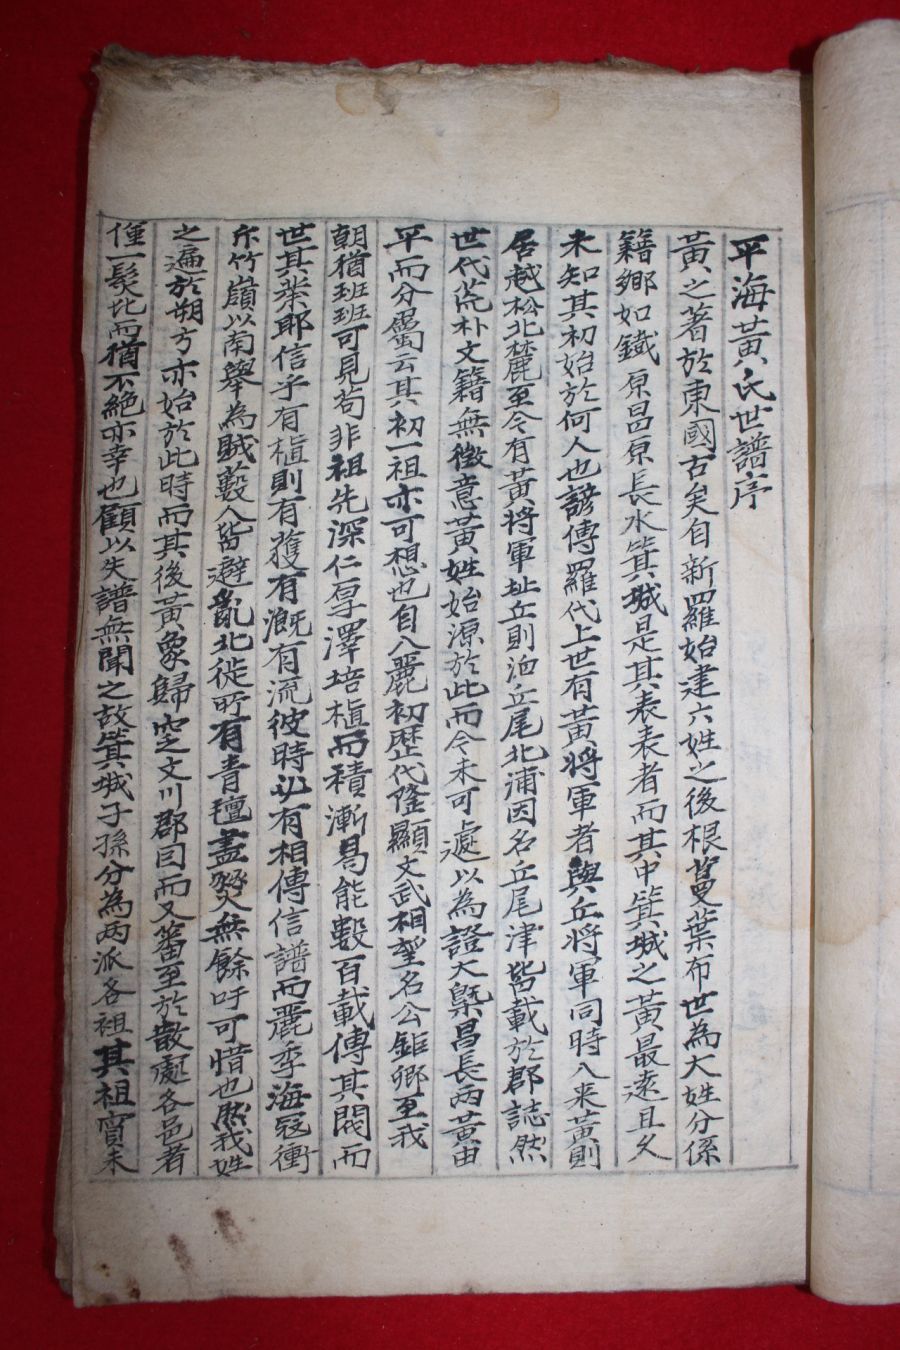 平海黃氏世譜序
黃之著於東國古矣自新羅始建六姓之後根蔓葉布世為大姓分係
籍鄉如鐵原昌原長水箕城是其表表者而其中箕城之黃最遠且久
未知其初始於何人也諺傳羅代上世有黃將軍者與丘將軍同時入来黃則
居越松北麓至今有黃將軍址丘則泊丘尾北浦因名丘尾津皆載於郡誌然
世代荒朴文籍無徵意黃姓始源於此而今未可遽以為證大槩昌長兩黃由
平而分屬云其初一祖亦可想也自入麗初歷代隆顯文武相望名公鉅卿至我
朝猶班班可見苟非祖先深仁厚澤培植而積漸曷能數百載傳其閥而
世其業耶信乎有植則有蔉有漑有流彼時必有相傳信譜而麗季海寇衝
尓竹嶺以南舉為賊藪人皆避亂北徙所有青氊盡爕無餘吁可惜也然我姓
之遍於朔方亦始於此時而其後黃象歸窆文川郡因而又蕃至於散處各邑者
僅一髮比而猶不絕亦幸也顧以失譜無聞之故箕城子孫分為两派各祖其祖實未